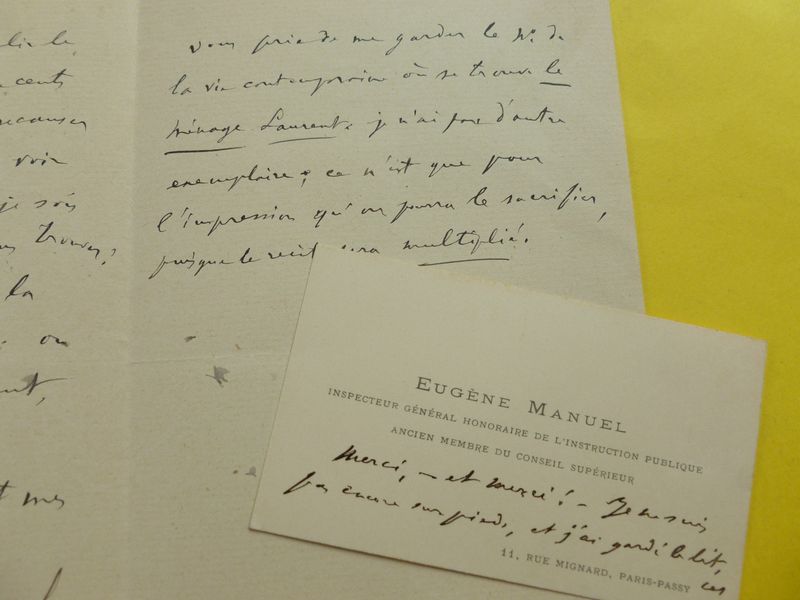 cents
recauser
voir
je sois
trouver ?
la
ou
mes
vous prie de me garder le No de
la vie contemporaine où se trouve le
Ménage Laurent. je n'ai pas d'autre
exemplaire ; ce n'est que pour
l'impression qu'on pourra le sacrifier,
puisque le récit sera multiplié.
EUGÈNE MANUEL
INSPECTEUR GÉNÉRAL HONORAIRE DE L'INSTRUCTION PUBLIQUE
ANCIEN MEMBRE DU CONSEIL SUPÉRIEUR
Merci, – et merci ! – Je ne suis
pas encore sur pieds, et j'ai gardé le lit, ces
11, RUE MIGNARD, PARIS-PASSY